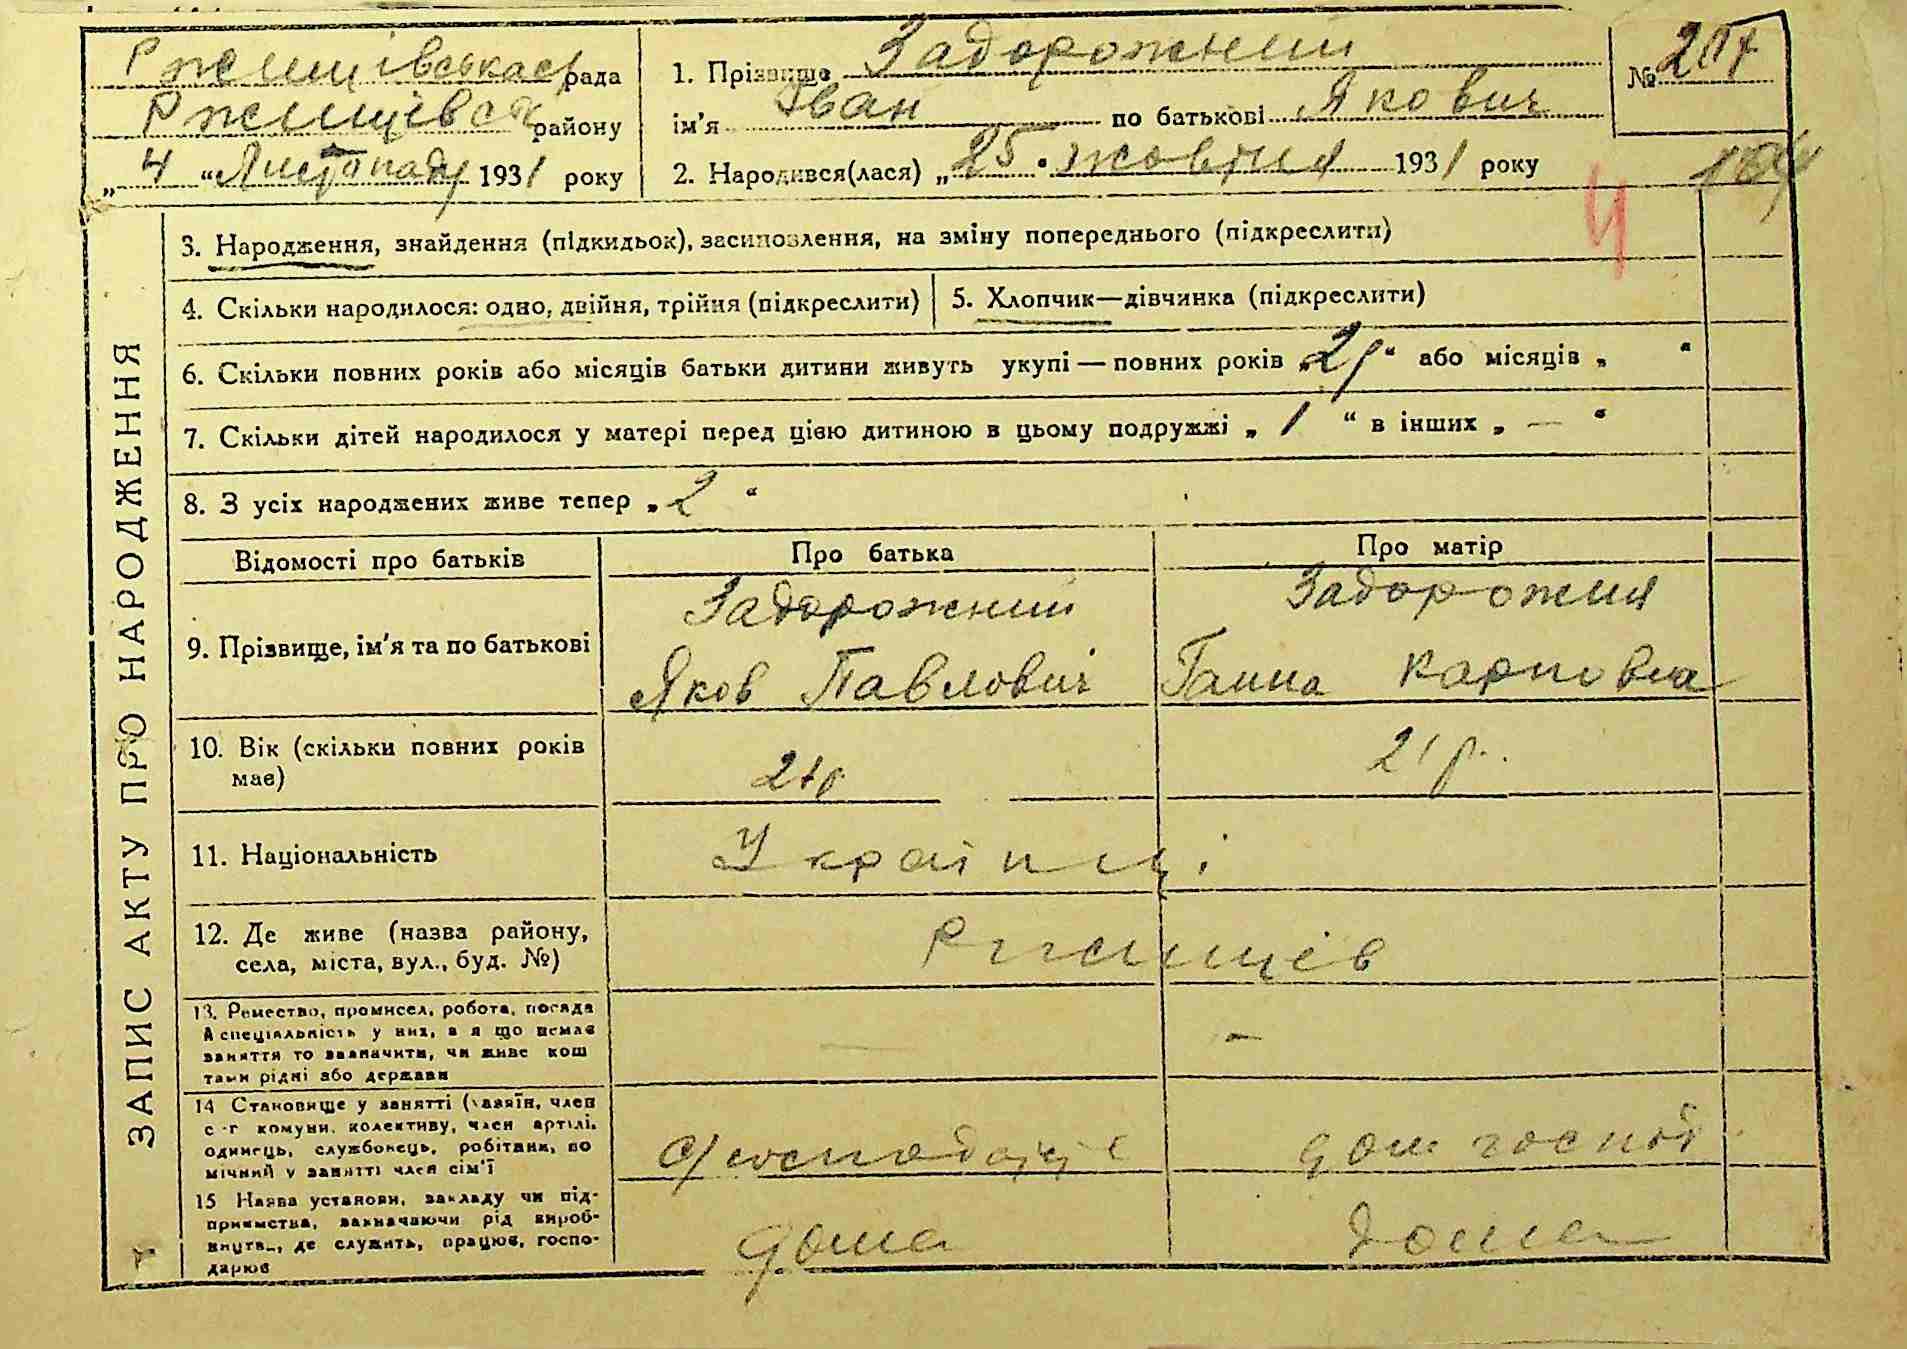 Ржищівська с/рада
Ржищівськ району
„ 4 “ Листопаду 1931 року
1. Прізвище Задорожний
ім'я Іван по батькові Якович
2. Народився(лася) „ 25 “ жовтня 1931 року
№
ЗАПИС АКТУ ПРО НАРОДЖЕННЯ
3. Народження, знайдення (підкидьок), засиновлення, на зміну попереднього (підкреслити)
4. Скільки народилося: одно, двійня, трійня (підкреслити)
5. Хлопчик—дівчинка (підкреслити)
6. Скільки повних років або місяців батьки дитини живуть укупі — повних років „ 2р “ або місяців „ “
7. Скільки дітей народилося у матері перед цією дитиною в цьому подружжі „ 1 “ в інших „ — “
8. З усіх народжених живе тепер „ 2 “
Відомості про батьків
Про батька
Про матір
9. Прізвище, ім'я та по батькові
Задорожний
Яков Павлович
Задорожня
Ганна Карповна
10. Вік (скільки повних років
має)
21р.
11. Національність
Українці
12. Де живе (назва району,
села, міста, вул., буд. №)
Ржищів
13. Ремество, промисел, робота, посада
А спеціяльність у них, а я що немає
заняття то зазначити, чи живе кош
тами рідні або держави
—
14 Становище у занятті (хазяїн, член
с-г комуни, колективу, член артілі,
одинець, службовець, робітник, по
мічний у занятті член сім'ї
с/господарує
дом господ.
15 Назва установи, закладу чи під-
приємства, зазначаючи рід вироб-
ництв., де служить, працює, госпо-
дарює
дома
дома